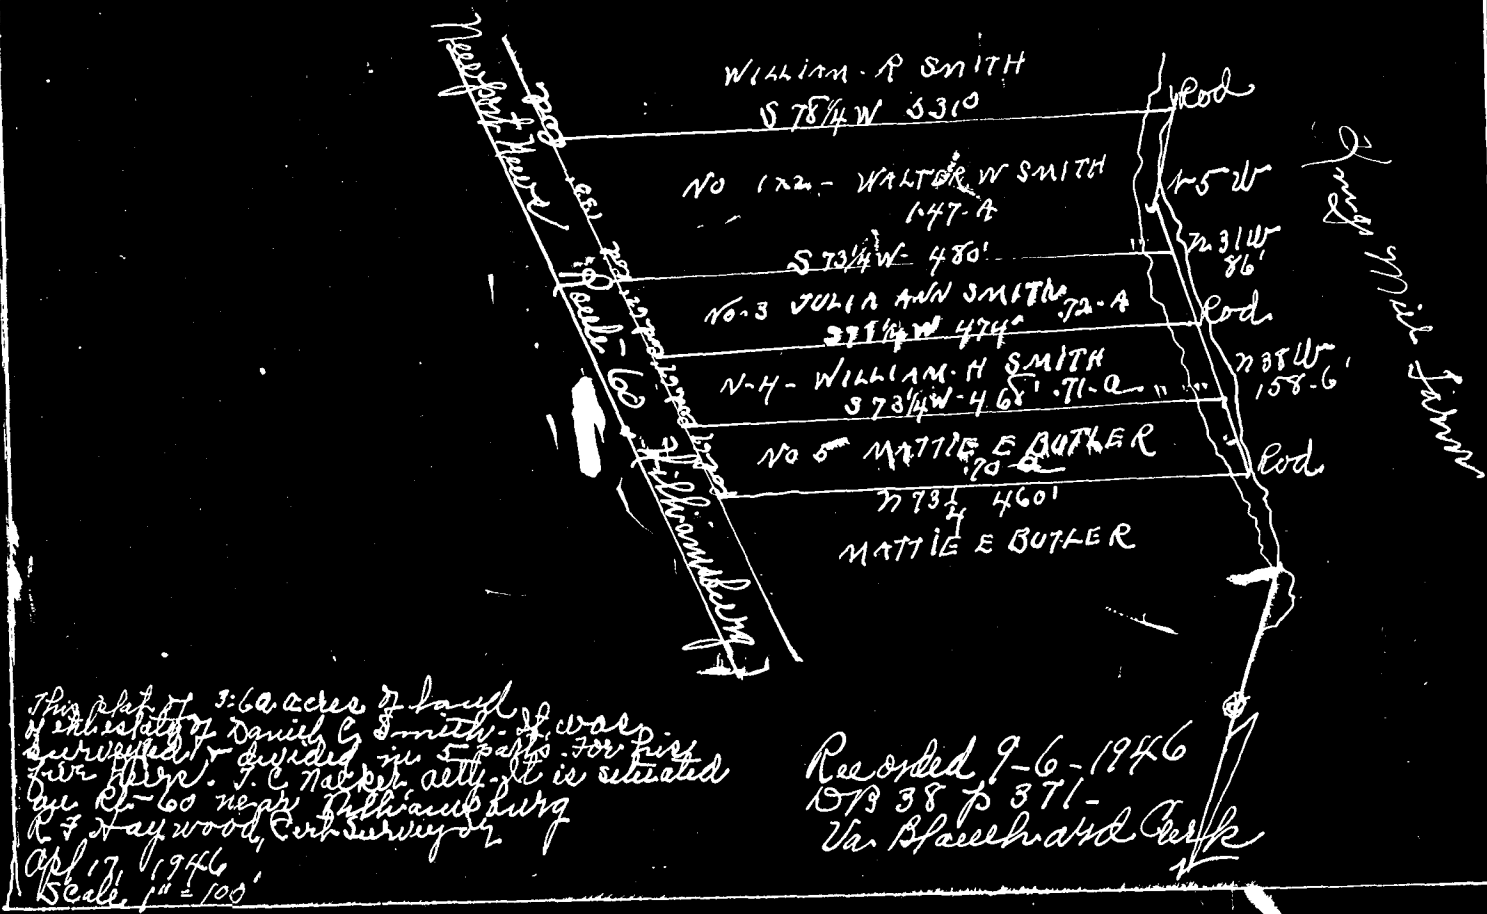 WILLIAM. R SMITH
S 78¼ W 531°
Rod
Rod
NO 1x2 - WALTER W SMITH
1.47-A
N 5 W
S 73¼ W - 480'
" 
N 31 W
86'
No-3 JULIA ANN SMITH .72-A
W 474'
Rod
N-4 - WILLIAM. H SMITH
S 73¼ W - 468' .71-a
" "
N 38 W
158-6'
NO 5 MATTIE E BUTLER
.70-a
Rod
N 73¼ 460'
MATTIE E BUTLER
Newport News
Route-60
Williamsburg
Kings Mill Farm
This plat of 3.60 acres of land
of the estate of Daniel C. Smith. It was
surveyed & divided in 5 parts. For his
five heirs. atty. It is situated
on Rt-60 near Williamsburg
R F Haywood, Cert Surveyor
Apl 17, 1946
Scale, 1" = 100'
Recorded 9-6-1946
DB 38 p 371-
Va. Blanchard Clerk